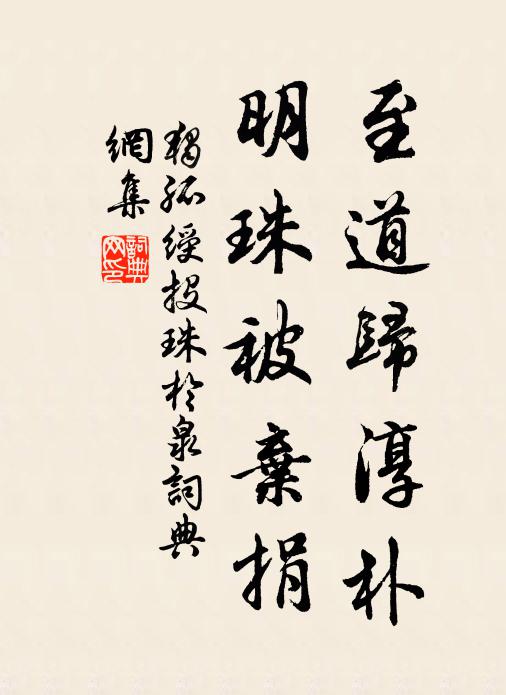 至道歸淳朴
明珠被棄捐
獨孤綬投珠於泉詞典
網集
詞典網印